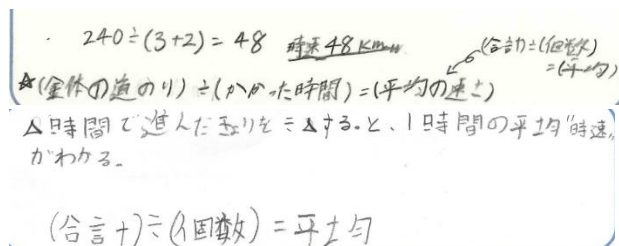 ・ 240÷(3+2)=48 時速48km
(合計)÷(個数)
=(平均)
☆(全体の道のり)÷(かかった時間)=(平均の速さ)
△時間で進んだきょりを÷△すると、1時間の平均"時速"
がわかる。
(合計)÷(個数)=平均